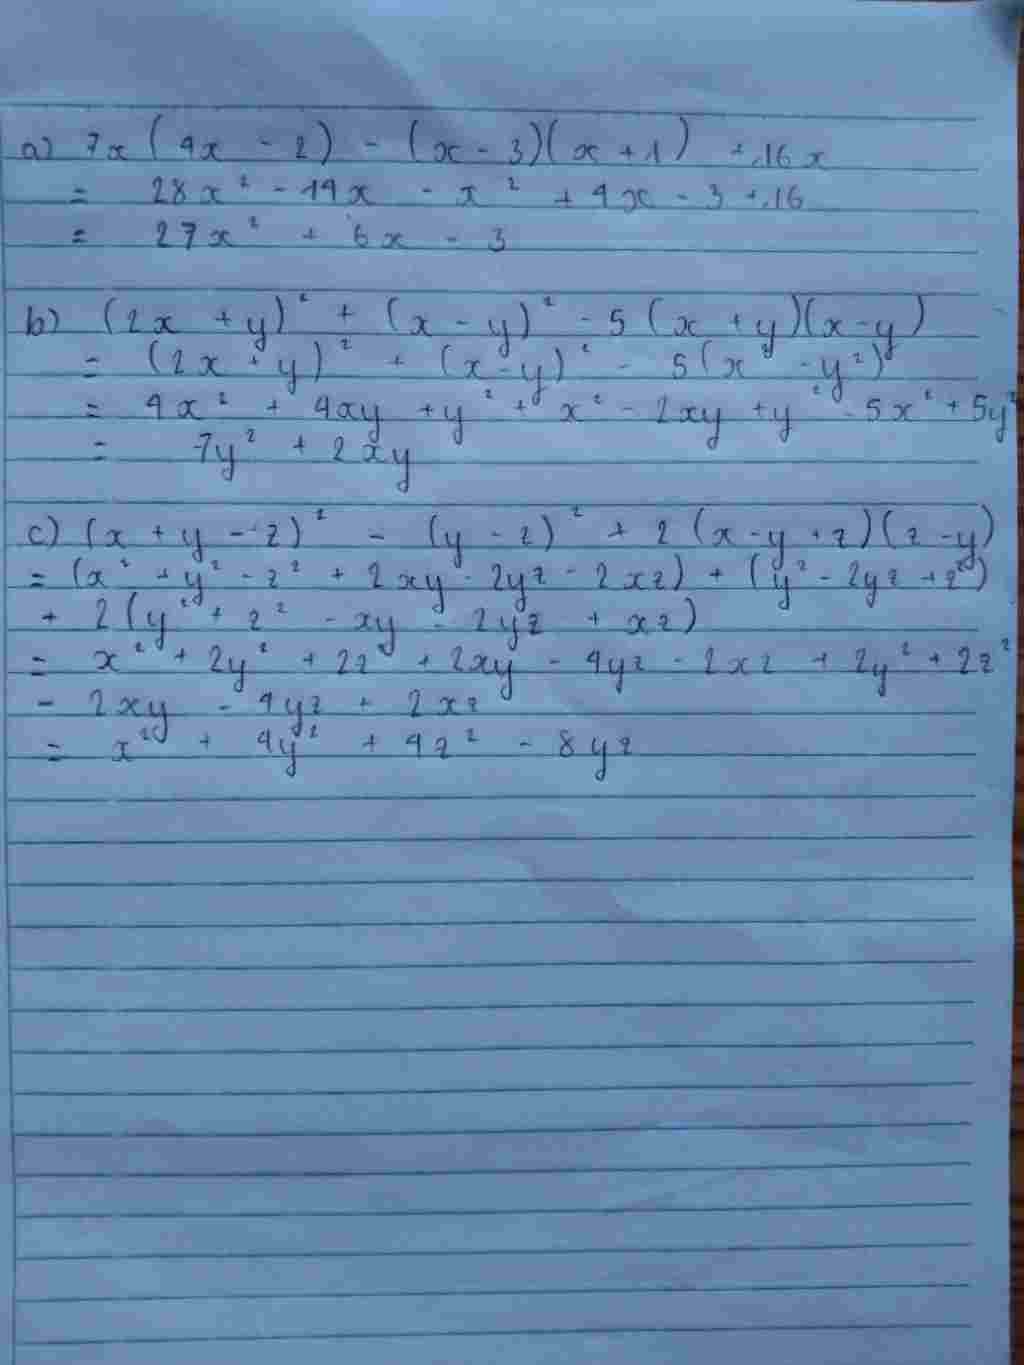 a) 7x (4x - 2) - (x - 3)(x + 1) + 16x
= 28x² - 14x - x² + 4x - 3 + 16
= 27x² + 6x - 3
b) (2x + y)² + (x - y)² - 5 (x + y)(x - y)
= (2x + y)² + (x - y)² - 5(x² - y²)
= 4x² + 4xy + y² + x² - 2xy + y² - 5x² + 5y²
= 7y² + 2xy
c) (x + y - z)² - (y - z)² + 2 (x - y + z)(z - y)
= (x² + y² - z² + 2xy - 2yz - 2xz) + (y² - 2yz + z²)
+ 2(y² + z² - xy - 2yz + xz)
= x² + 2y² + 2z² + 2xy - 4yz - 2xz + 2y² + 2z²
- 2xy - 4yz + 2xz
= x² + 4y² + 4z² - 8yz